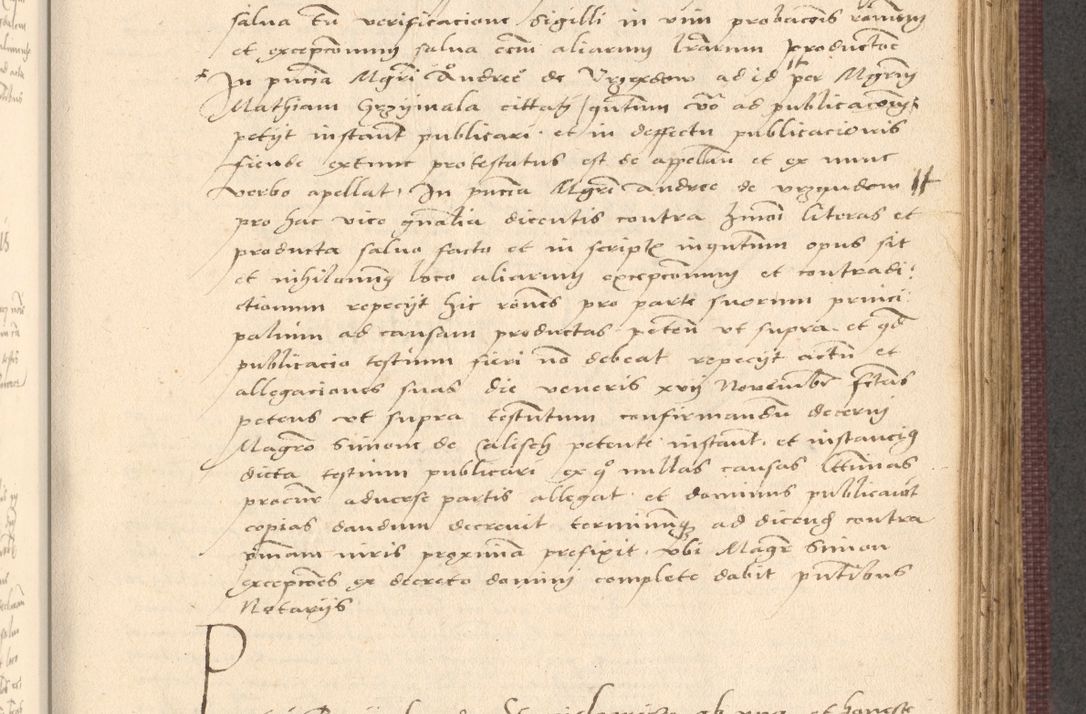 salva tn̄ verificacione sigilli in vim probacōis
et excepcōnum salva eciā aliarum lr̄arum productōe
In pn̄cia Mgrī Andreę de Vrzendow ad id per Mgrm̄
Mathiam Grzymala cittatj quntum v̄o ad publicacōnem
petijt instant̄ publicari et in deffectu publicacionis
fiende extunc protestatus est de appelān et ex nunc
verbo apellat In pn̄cia Mgrī Andree de vrzendow
pro hac vice gn̄alia dicentis contra hmōi literas et
producta salvo facto et in script inquntum opus sit
et nihilominꝯ loco aliarum excepcōnum et contradi:
ctionum repecijt hic rōnes pro parte suorum princi:
palium ad causam productas peten̄ vt supra et qd̄
publicacio testium fieri nō debeat repecijt actū et
allegaciones suas die veneris xvij Novembr̄ fctās
petens vt supra testn̄tum confirmandū decerni
Magrō Simone de Salisch petente instant̄ et instanciꝯ
dicta testium publicari ex qō nullas causas lttimas
procur̄ adverse partis allegat et dominus publicavit
copias dandum decrevit terminūqꝫ ad dicend contra
pm̄am iuris proximā prefixit vbi Magr̄ Simon
excepcōes ex decreto domini complete dabit pn̄tibus
Notarijs
P